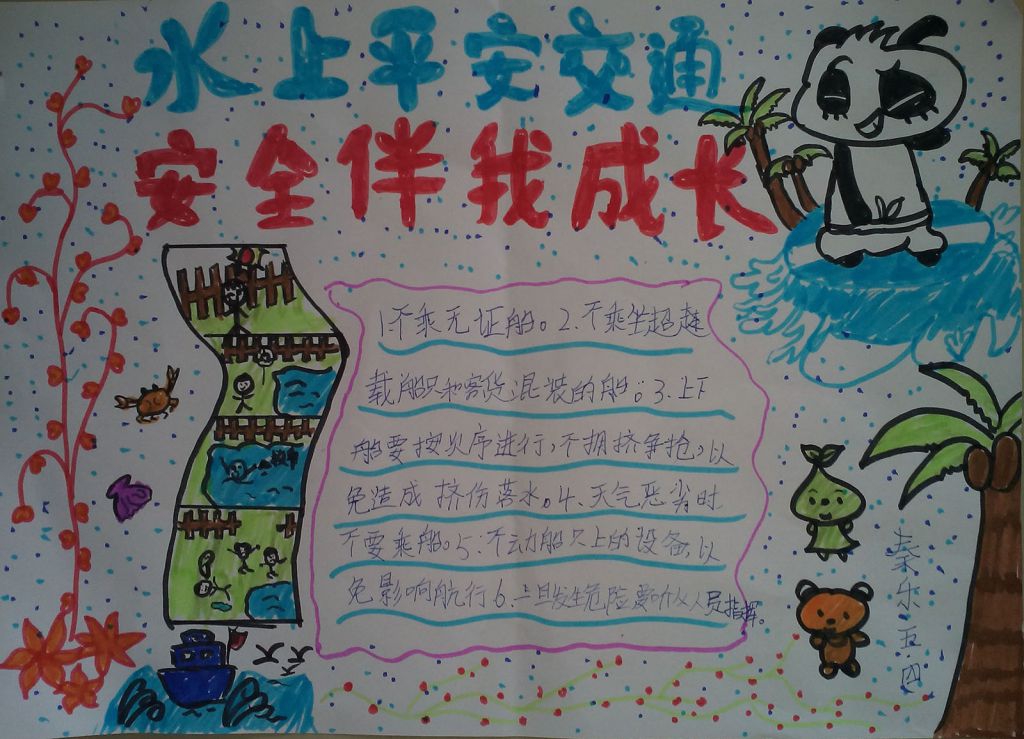 水上平安交通
安全伴我成长
1不乘无证船。2.不乘坐超超
载船只和客货混装的船。3.上下
船要按次序进行,不拥挤争抢,以
免造成挤伤落水。4、天气恶劣时
不要乘船。5、不动船只上的设备,以
免影响航行6、一旦发生危险要听从人员指挥。
秦乐 五四